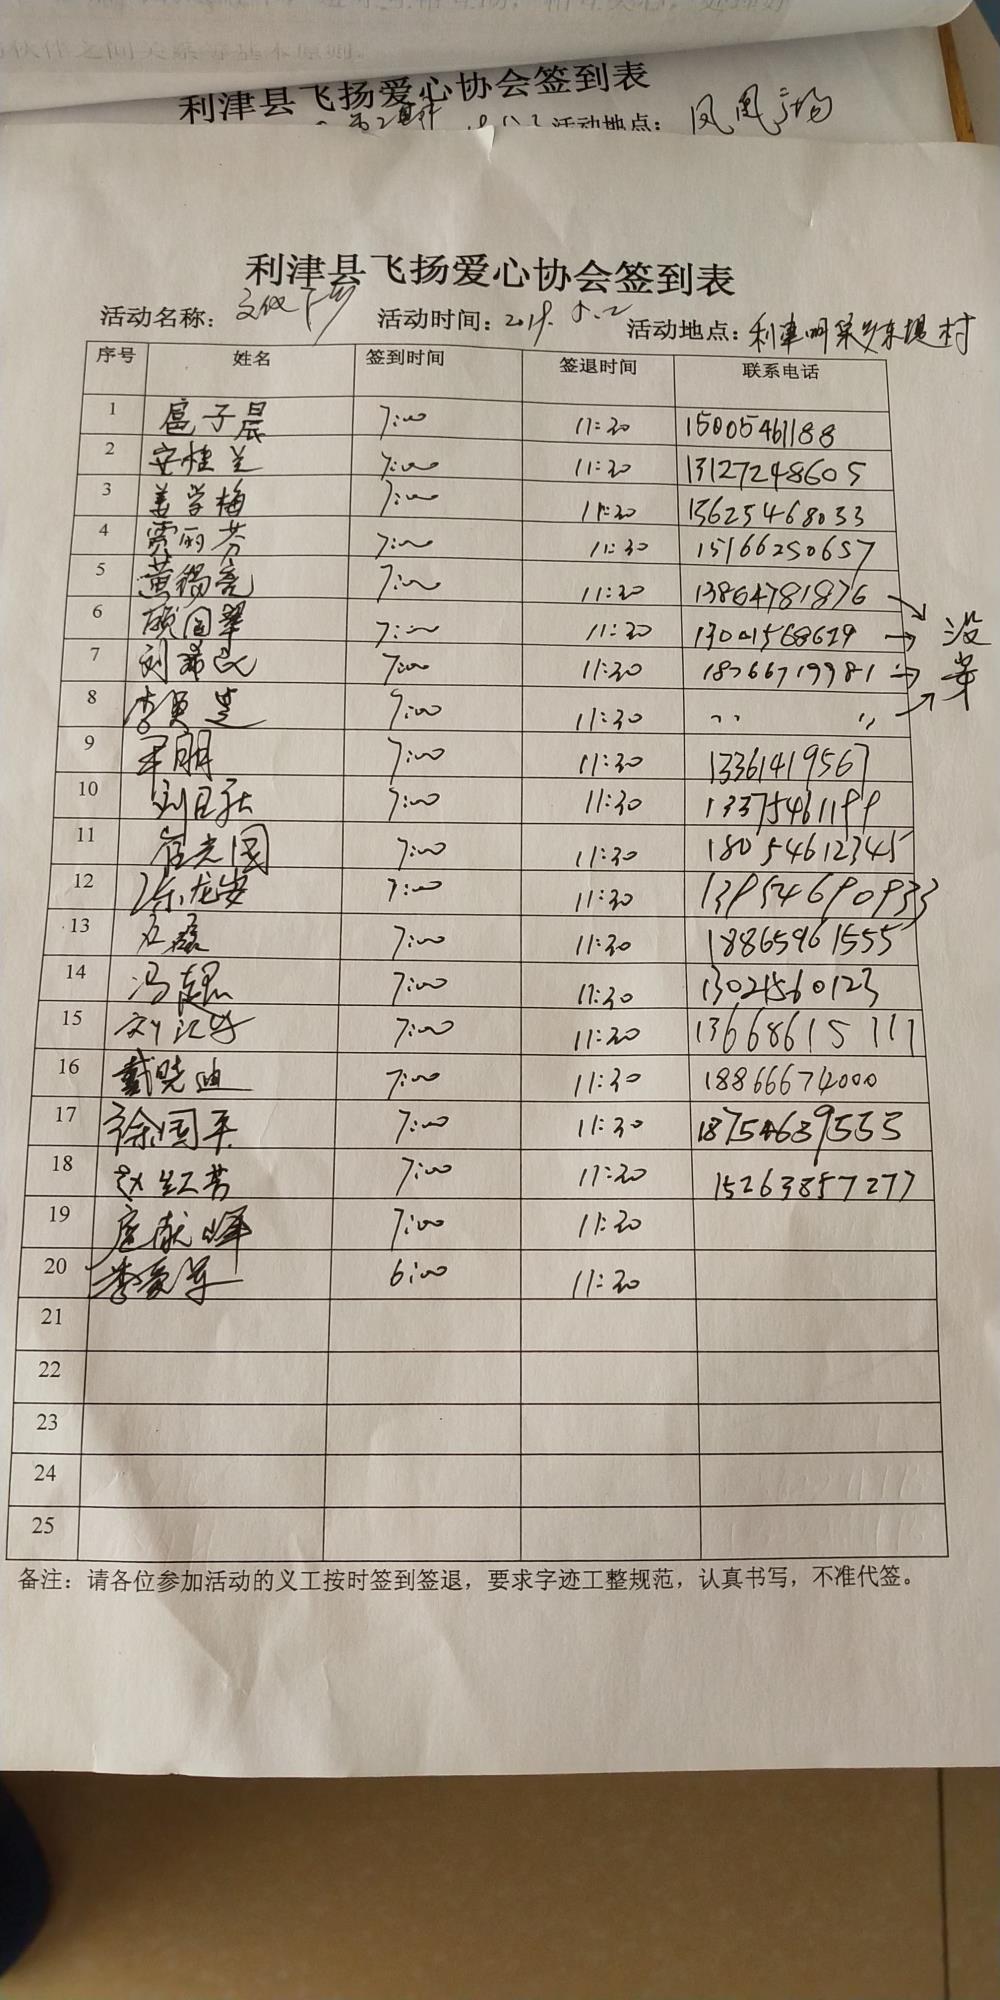 伙伴之间关系等基本原则。
利津县飞扬爱心协会签到表
活动地点： 凤凰广场
利津县飞扬爱心协会签到表
活动名称： 文化下乡 活动时间：2019.5.2 活动地点：利津明集乡东堤村
序号 姓名 签到时间 签退时间 联系电话
1 扈子晨 7:00 11:30 15005461188
2 安桂兰 7:00 11:30 13127248605
3 姜学梅 7:00 11:30 15625468033
4 贾丽芬 7:00 11:30 15166250657
5 黄锡亮 7:00 11:30 13864781876
6 顾国翠 7:00 11:30 13001568629 没
7 刘希民 7:00 11:30 18766719981 第
8 李 7:00 11:30 〃 〃
9 朋 7:00 11:30 13361419567
10 刘 7:00 11:30 13375461199
11 崔光国 7:00 11:30 18054612345
12 陈龙安 7:00 11:30 13954690933
13 石磊 7:00 11:30 18865961555
14 冯超 7:00 11:30 13021560123
15 刘江 7:00 11:30 13668615111
16 戴晓迪 7:00 11:30 18866674000
17 徐国平 7:00 11:30 18754689555
18 赵红芳 7:00 11:30 15263857277
19 扈献峰 7:00 11:30
20 李爱军 6:00 11:30
21
22
23
24
25
备注：请各位参加活动的义工按时签到签退，要求字迹工整规范，认真书写，不准代签。